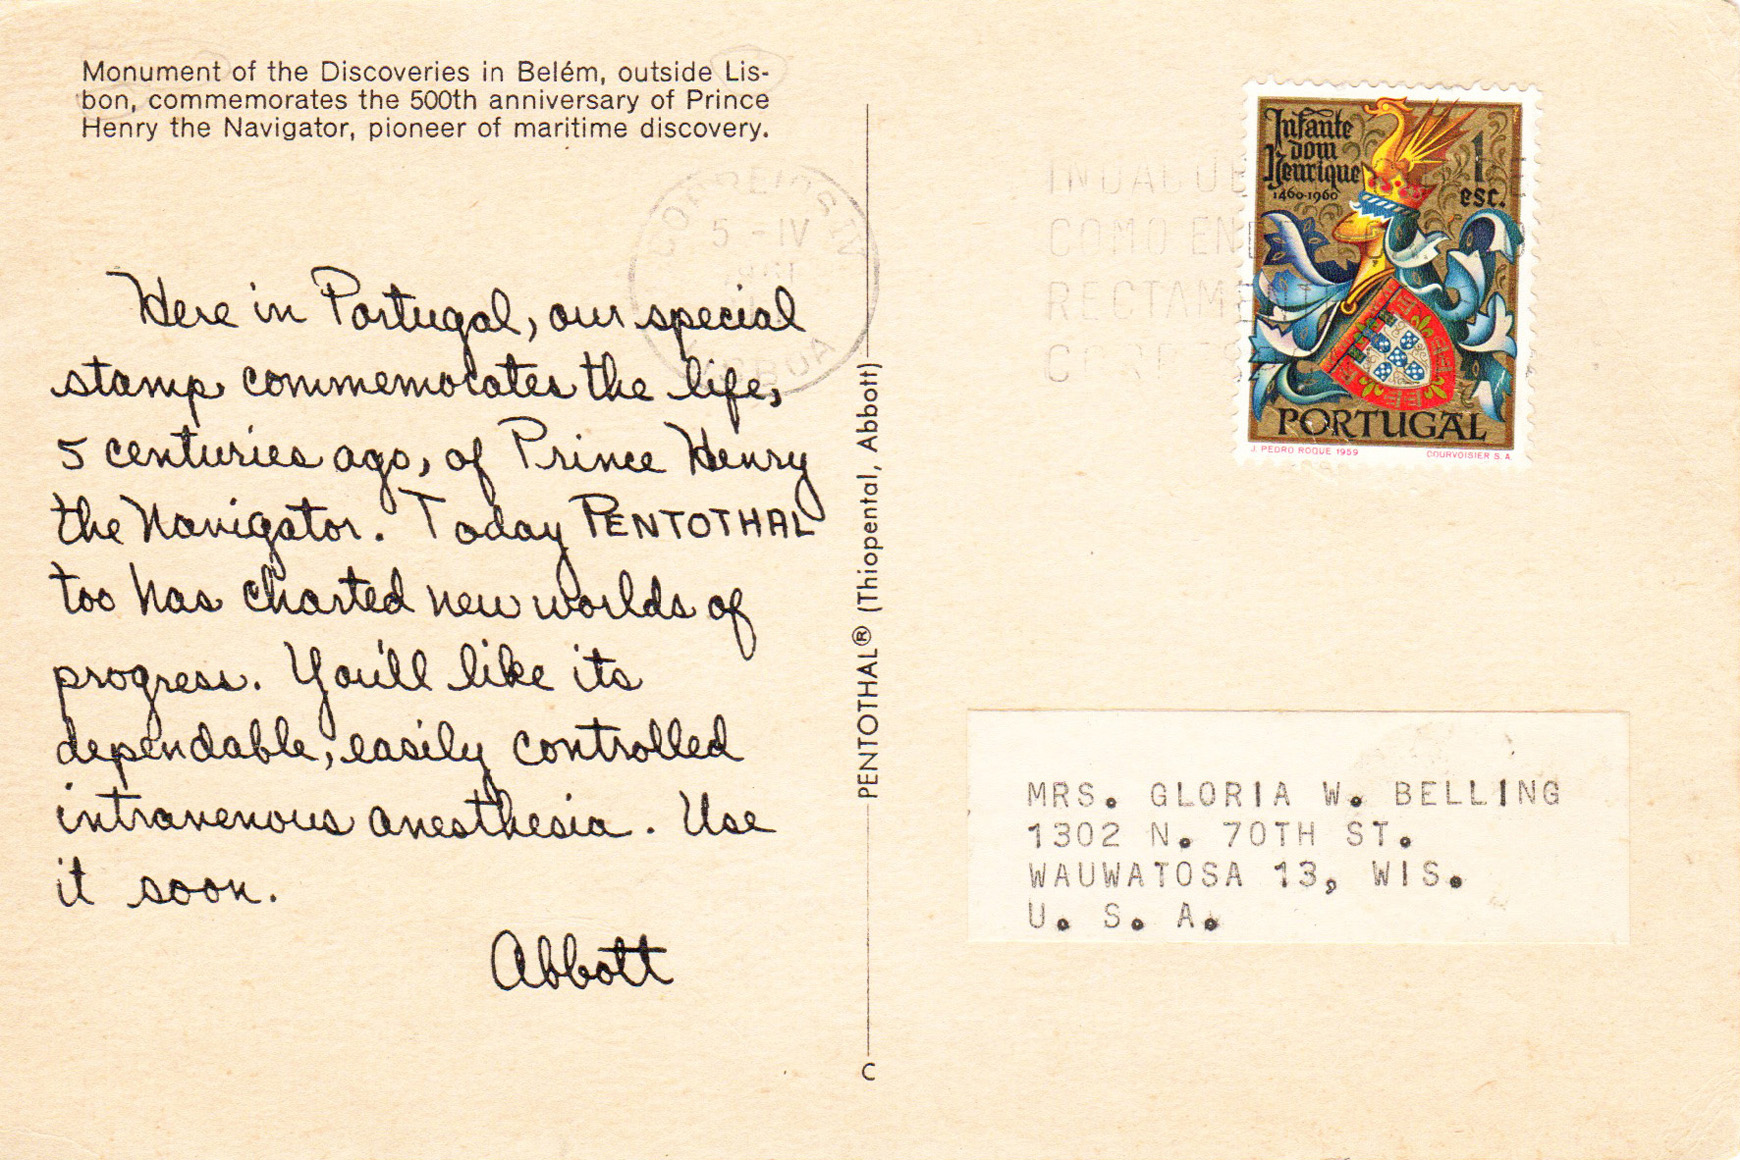 Monument of the Discoveries in Belém, outside Lis-
bon, commemorates the 500th anniversary of Prince
Henry the Navigator, pioneer of maritime discovery.
Here in Portugal, our special
stamp commemorates the life,
5 centuries ago, of Prince Henry
the Navigator. Today PENTOTHAL
too has charted new worlds of
progress. You'll like its
dependable, easily controlled
intravenous anesthesia. Use
it soon.
Abbott
PENTOTHAL® (Thiopental, Abbott)
C
5 - IV
COMO
Infante
dom
Henrique
1460-1960
1
esc.
PORTUGAL
J. PEDRO ROQUE 1959
COURVOISIER S. A.
MRS. GLORIA W. BELLING
1302 N. 70TH ST.
WAUWATOSA 13, WIS.
U. S. A.